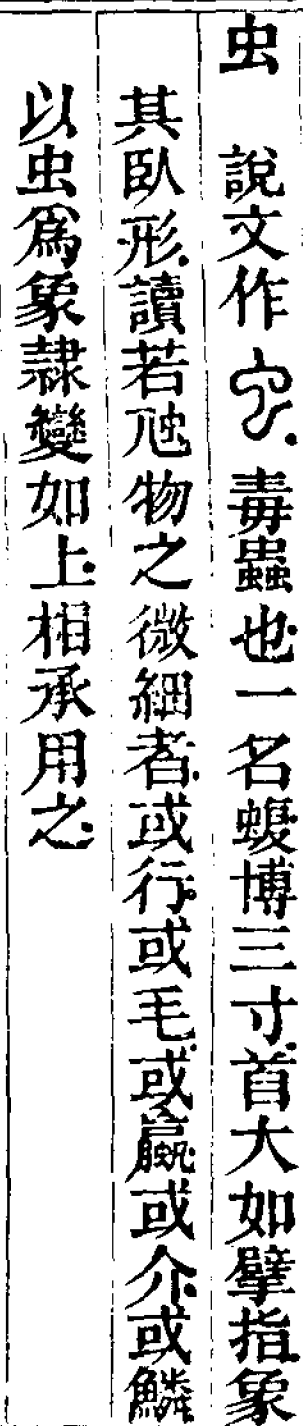 虫 說文作𧈢毒蟲也一名蝮博三寸首大如擘指象
其臥形讀若虺物之微細者或行或毛或蠃或介或鱗
以虫爲象隷變如上相承用之